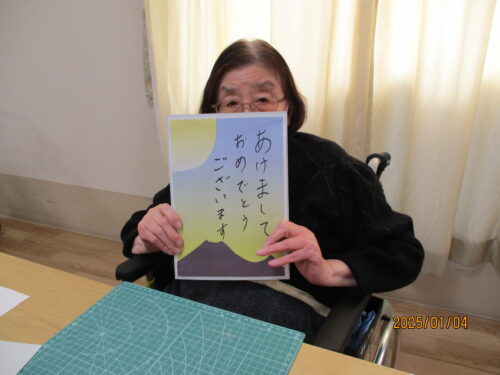 あけまして
おめでとう
ございます
2025/01/04